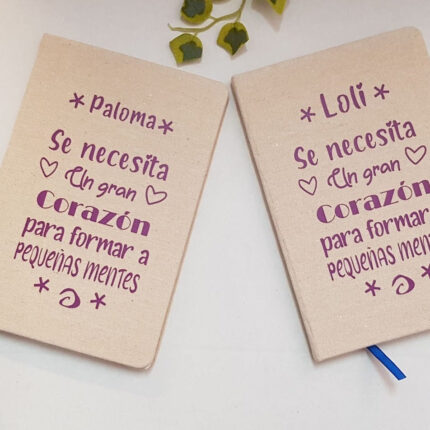 Paloma
Se necesita
Un gran
Corazón
para formar a
PEQUEÑAS MENTES
Loli
Se necesita
Un gran
Corazón
para formar
PEQUEÑAS